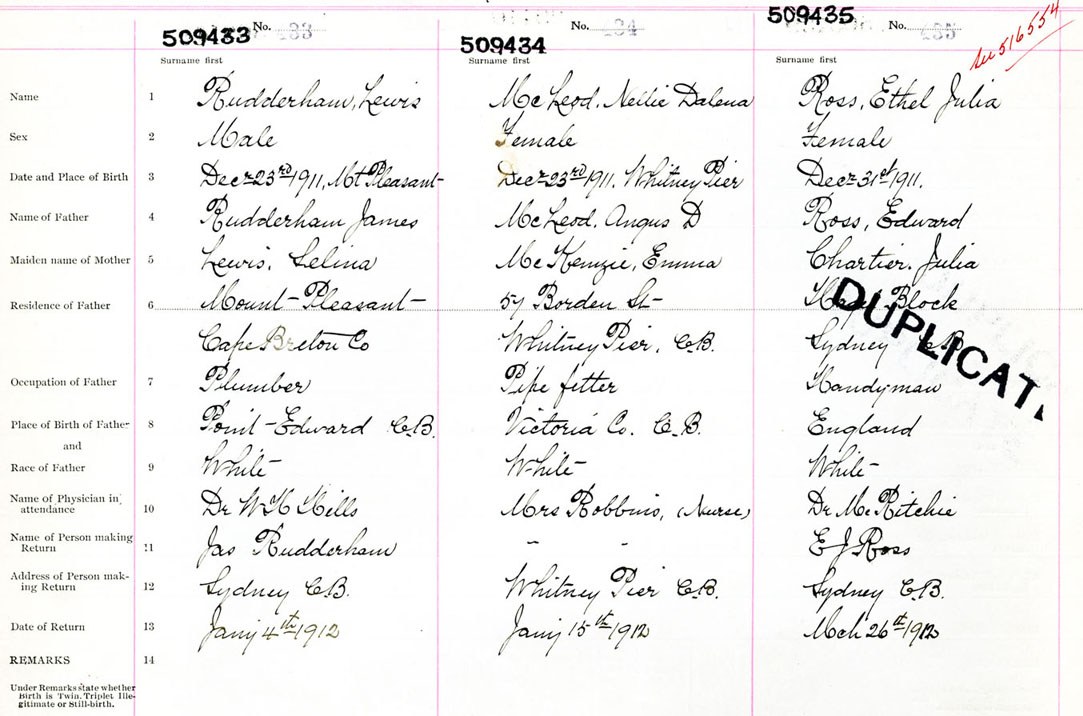 509433 No. 433 509434 No. 434 509435 No. 435 See 516554
Surname first Surname first Surname first
Name 1 Rudderham, Lewis McLeod. Nellie Dalena Ross, Ethel Julia
Sex 2 Male Female Female
Date and Place of Birth 3 Decr 23rd 1911, Mt Pleasant Decr 23rd 1911. Whitney Pier Decr 31st 1911.
Name of Father 4 Rudderham James McLeod. Angus D Ross, Edward
Maiden name of Mother 5 Lewis. Selina McKenzie, Emma Chartier. Julia
Residence of Father 6 Mount Pleasant 57 Borden St Block
Cape Breton Co Whitney Pier, C.B. Sydney C.B.
DUPLICAT
Occupation of Father 7 Plumber Pipe fitter Handyman
Place of Birth of Father 8 Point Edward C.B. Victoria Co. C.B. England
and
Race of Father 9 White White White
Name of Physician in attendance 10 Dr W K Hills Mrs Robbins, (Nurse) Dr McRitchie
Name of Person making Return 11 Jas Rudderham " " E J Ross
Address of Person making Return 12 Sydney C.B. Whitney Pier C.B. Sydney C.B.
Date of Return 13 Jany 4th 1912 Jany 15th 1912 Mch 26th 1912
REMARKS 14
Under Remarks state whether
Birth is Twin, Triplet Ille-
gitimate or Still-birth.